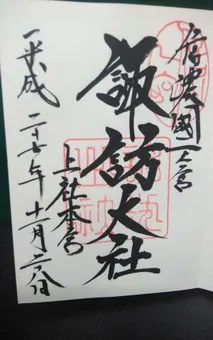 信濃國一之宮
諏訪大社
上社本宮
平成二十七年十一月二八日